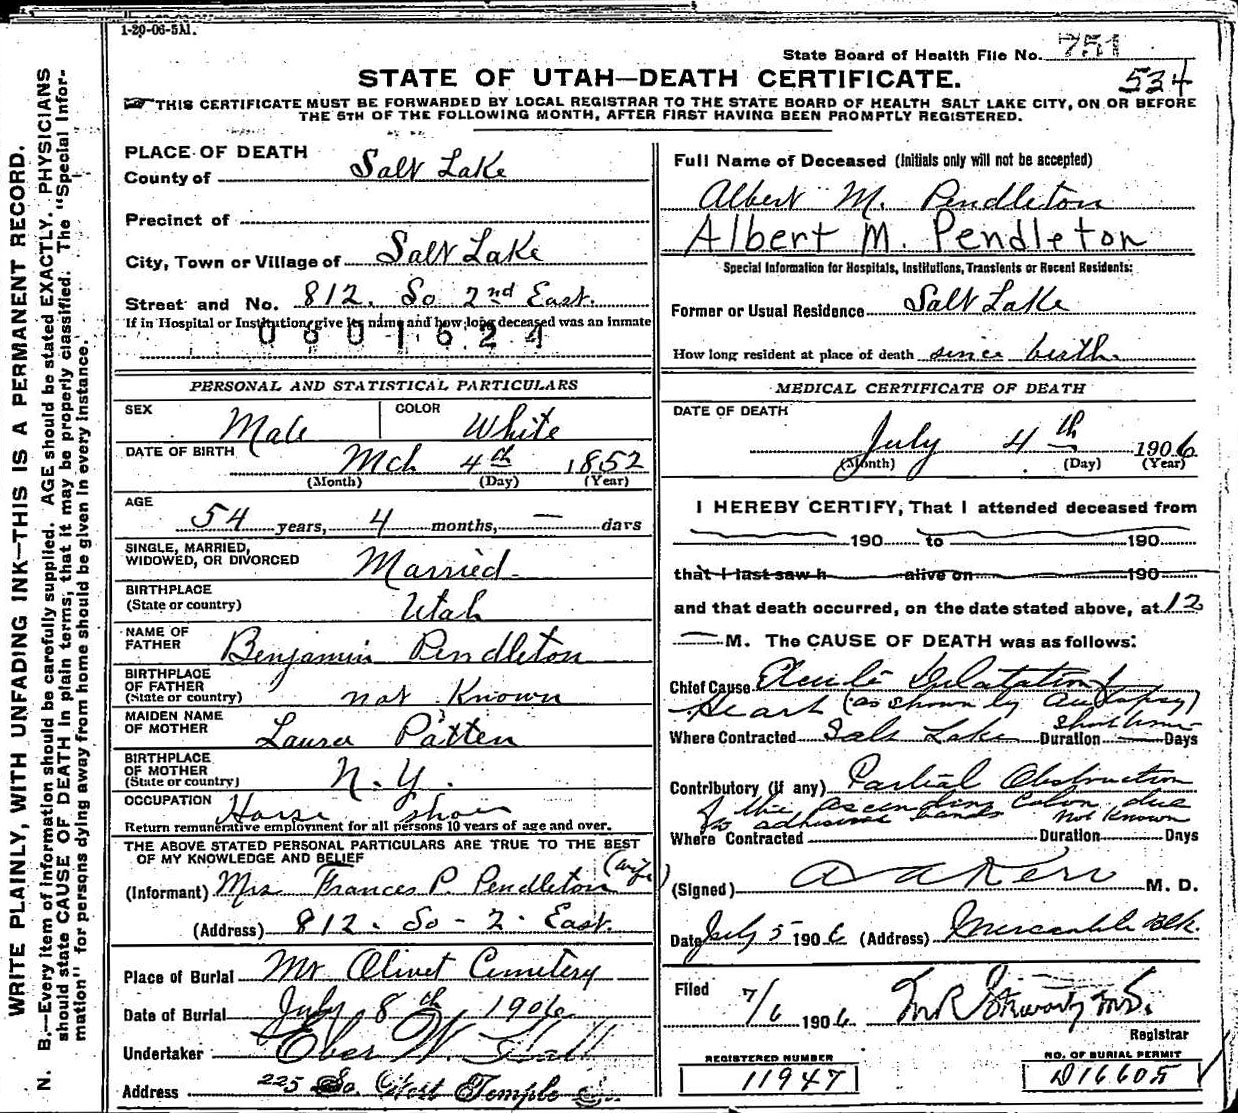 1-20-06-5M.
State Board of Health File No. 751
534
STATE OF UTAH—DEATH CERTIFICATE.
THIS CERTIFICATE MUST BE FORWARDED BY LOCAL REGISTRAR TO THE STATE BOARD OF HEALTH SALT LAKE CITY, ON OR BEFORE
THE 5TH OF THE FOLLOWING MONTH, AFTER FIRST HAVING BEEN PROMPTLY REGISTERED.
WRITE PLAINLY, WITH UNFADING INK—THIS IS A PERMANENT RECORD.
N. B.—Every item of information should be carefully supplied. AGE should be stated EXACTLY. PHYSICIANS
should state CAUSE OF DEATH in plain terms, that it may be properly classified. The "Special Infor-
mation" for persons dying away from home should be given in every instance.
PLACE OF DEATH
County of Salt Lake
Precinct of
City, Town or Village of Salt Lake
Street and No. 812. So 2nd East.
If in Hospital or Institution, give its name and how long deceased was an inmate
0601624
PERSONAL AND STATISTICAL PARTICULARS
SEX Male COLOR White
DATE OF BIRTH Mch 4th 1852
(Month) (Day) (Year)
AGE
54 years, 4 months, — days
SINGLE, MARRIED,
WIDOWED, OR DIVORCED Married
BIRTHPLACE
(State or country) Utah
NAME OF
FATHER Benjamin Pendleton
BIRTHPLACE
OF FATHER
(State or country) not Known
MAIDEN NAME
OF MOTHER Laura Patten
BIRTHPLACE
OF MOTHER
(State or country) N.Y.
OCCUPATION Horse Shoer
Return remunerative employment for all persons 10 years of age and over.
THE ABOVE STATED PERSONAL PARTICULARS ARE TRUE TO THE BEST
OF MY KNOWLEDGE AND BELIEF
(Informant) Mrs Frances P. Pendleton (wife)
(Address) 812. So - 2. East.
Place of Burial Mt Olivet Cemetery
Date of Burial July 8th 1906
Undertaker Eber W. Hall
Address 225 So. West Temple St.
Full Name of Deceased (Initials only will not be accepted)
Albert M. Pendleton
Albert M. Pendleton
Special Information for Hospitals, Institutions, Transients or Recent Residents:
Former or Usual Residence Salt Lake
How long resident at place of death since birth
MEDICAL CERTIFICATE OF DEATH
DATE OF DEATH
July 4th 1906
(Month) (Day) (Year)
I HEREBY CERTIFY, That I attended deceased from
190 to 190
that I last saw h alive on 190
and that death occurred, on the date stated above, at 12
— M. The CAUSE OF DEATH was as follows:
Chief Cause Acute Dilatation of
Heart (as shown by Autopsy)
short time
Where Contracted Salt Lake Duration — Days
Contributory (If any) Partial Obstruction
of the ascending Colon due
to adhesive bands not Known
Where Contracted Duration Days
(Signed) M. D.
Date July 5 1906 (Address) Mercantile Blk.
Filed 7/6 1906
Registrar
REGISTERED NUMBER
11947
NO. OF BURIAL PERMIT
D16605